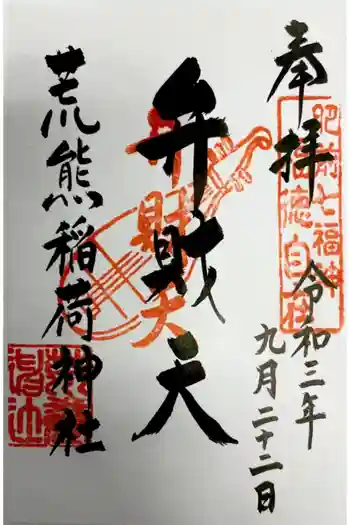 奉拝
肥前七福神
福徳自在
令和三年
九月二十二日
弁財天
弁財天
荒熊稲荷神社